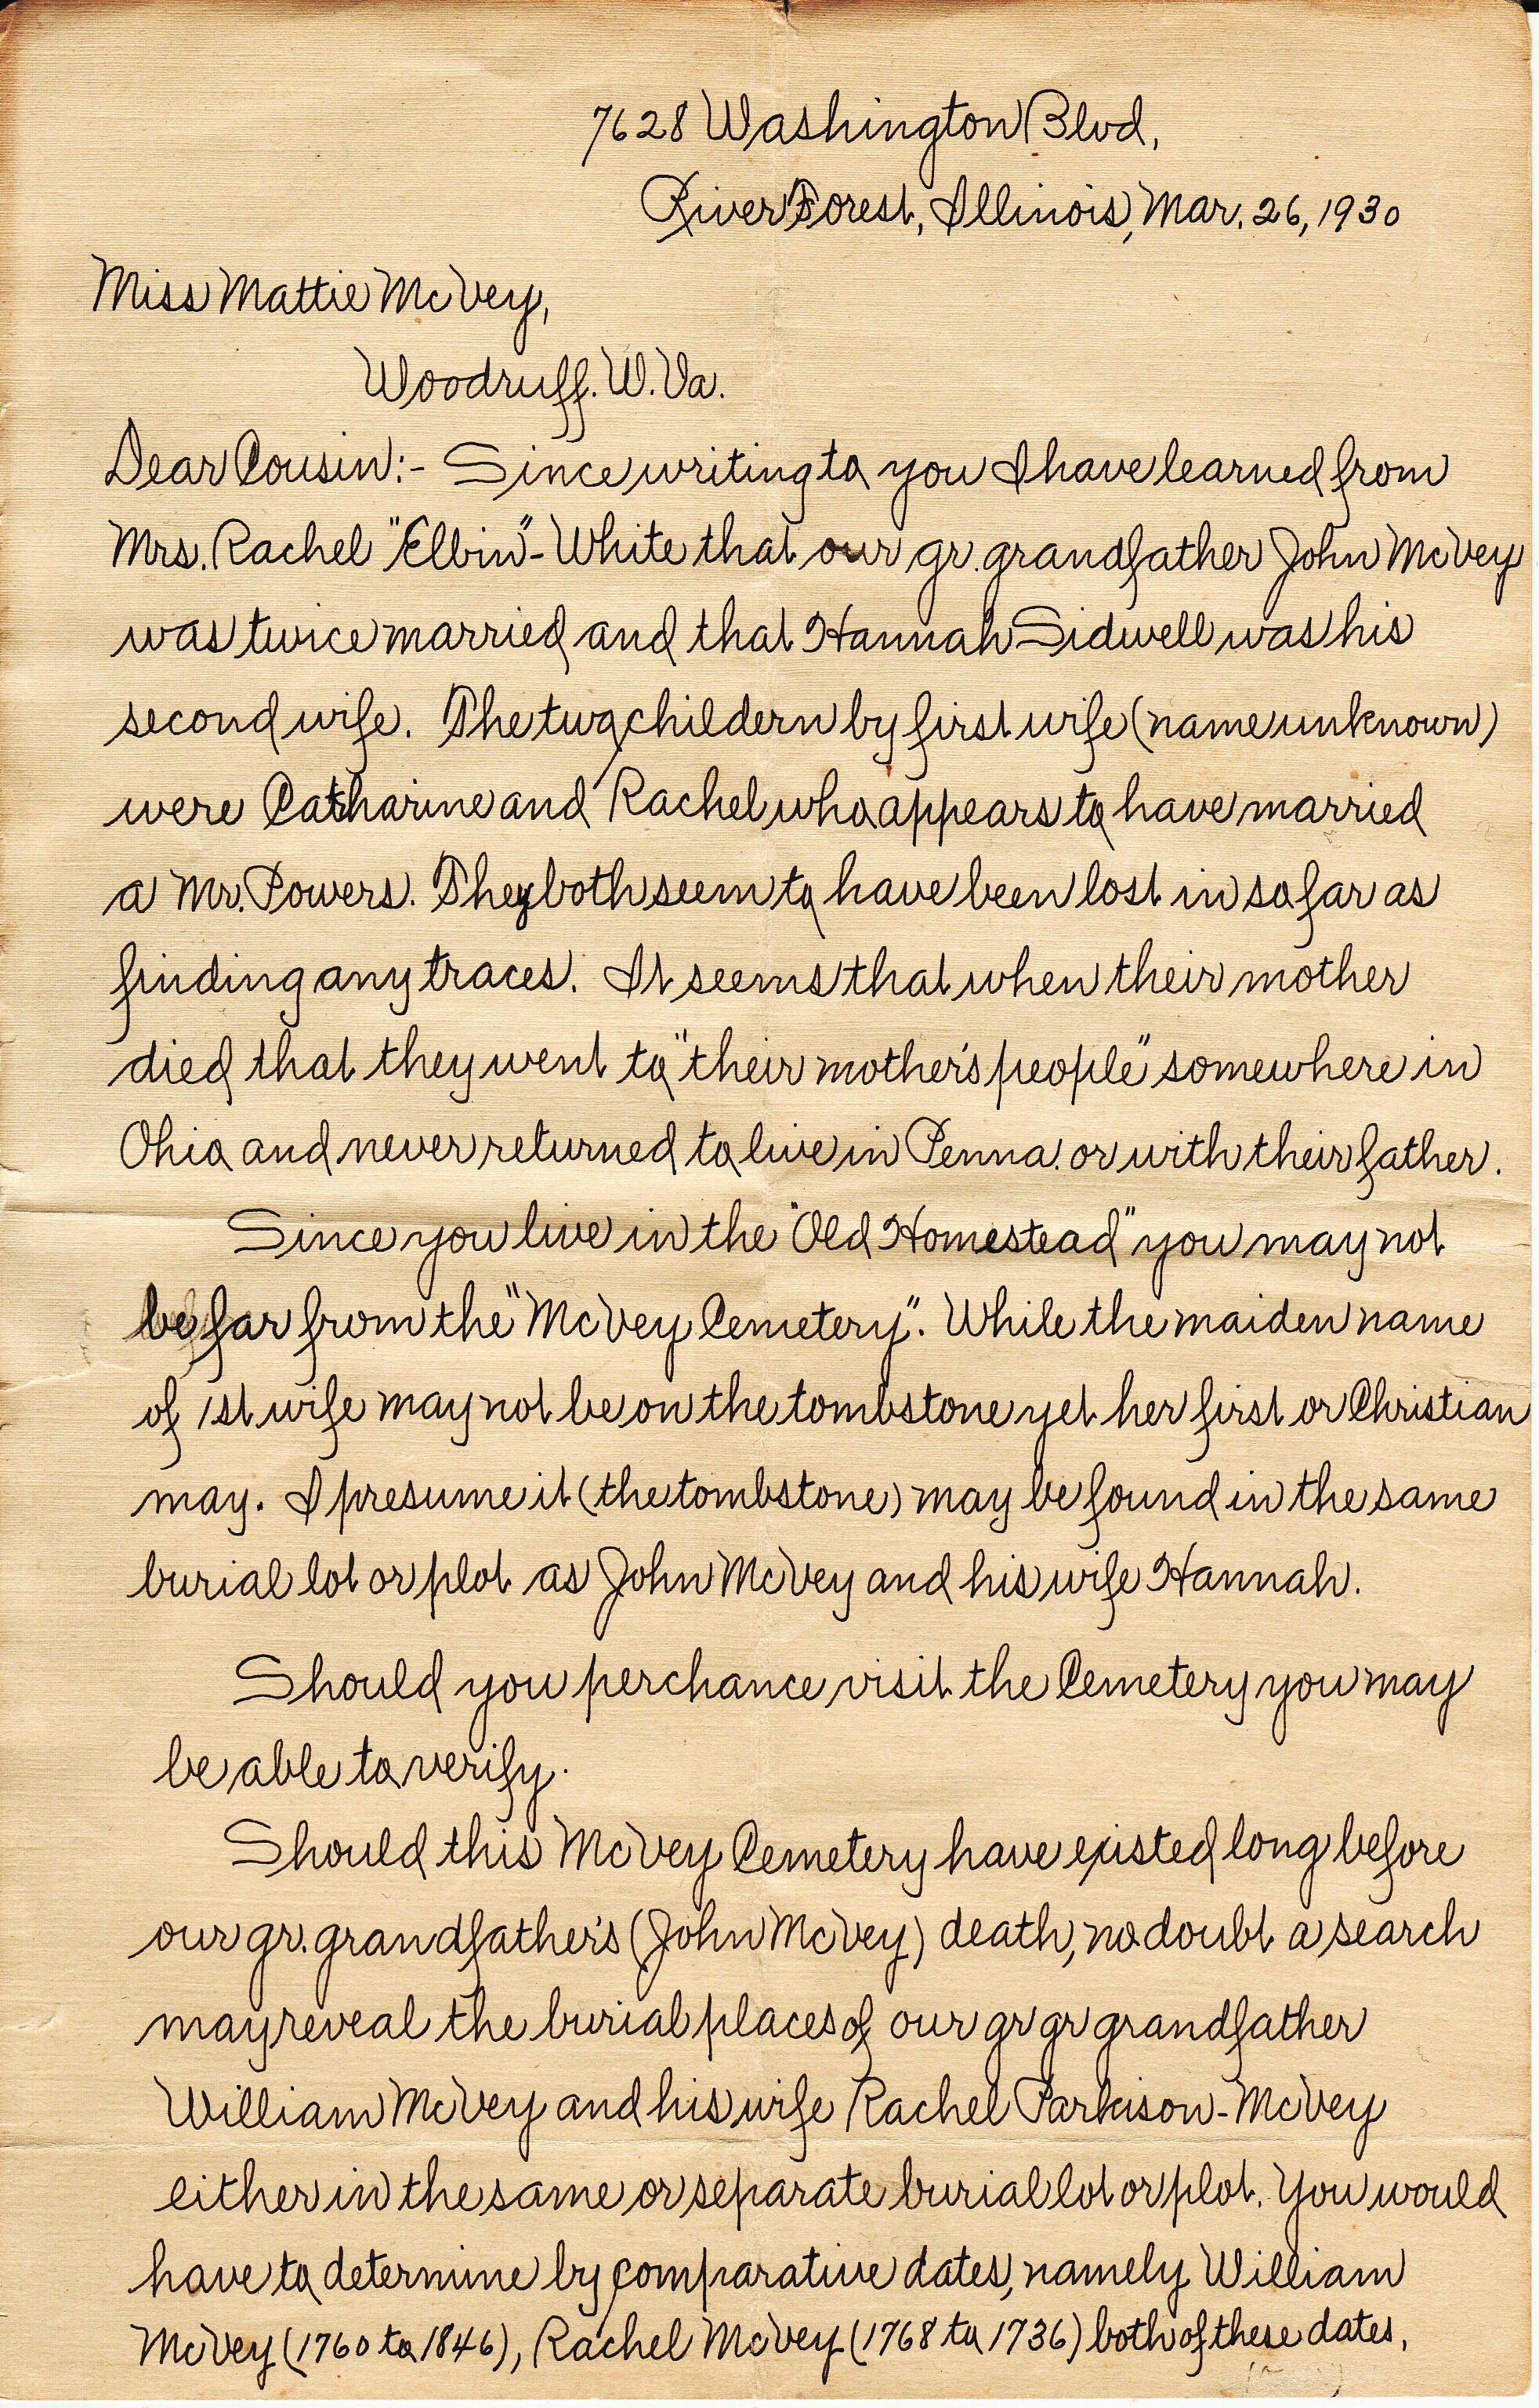 7628 Washington Blvd,
River Forest, Illinois, Mar. 26, 1930
Miss Mattie McVey,
Woodruff. W. Va.
Dear Cousin:- Since writing to you I have learned from
Mrs. Rachel "Elbin"-White that our gr. grandfather John McVey
was twice married and that Hannah Sidwell was his
second wife. The two childern by first wife (name unknown)
were Catharine and Rachel who appears to have married
a Mr. Powers. They both seem to have been lost in so far as
finding any traces. It seems that when their mother
died that they went to "their mother's people" somewhere in
Ohio and never returned to live in Penna. or with their father.
Since you live in the "Old Homestead" you may not
be far from the "McVey Cemetery". While the maiden name
of 1st wife may not be on the tombstone yet her first or Christian
may. I presume it (the tombstone) may be found in the same
burial lot or plot as John McVey and his wife Hannah.
Should you perchance visit the Cemetery you may
be able to verify.
Should this McVey Cemetery have existed long before
our gr. grandfather's (John McVey) death, no doubt a search
may reveal the burial places of our gr gr grandfather
William McVey and his wife Rachel Parkison-McVey
either in the same or separate burial lot or plot. You would
have to determine by comparative dates, namely William
McVey (1760 to 1846), Rachel McVey (1768 to 1736) both of these dates.